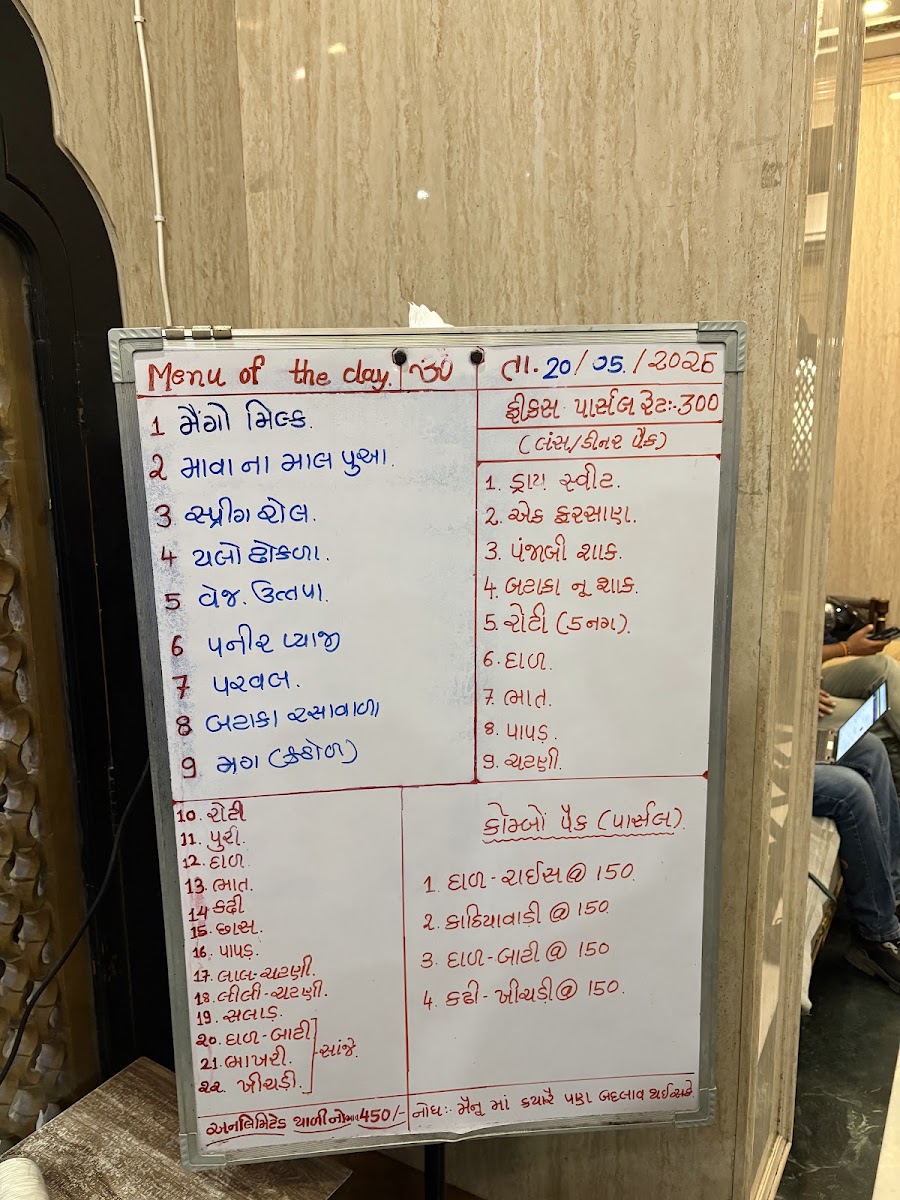 Menu of the day.
તા. 20/05/2026
1 મેંગો મિલ્ક.
2 માવા ના માલ પુઆ.
3 સ્પ્રીગ રોલ.
4 યલો ઢોકળા.
5 વેજ. ઉત્તપા.
6 પનીર પ્યાજી
7 પરવલ.
8 બટાકા રસાવાળા
9 મગ (કઠોળ)
10. રોટી
11. પુરી.
12. દાળ
13. ભાત.
14 કઢી
15. છાસ.
16. પાપડ.
17. લાલ-ચટણી.
18. લીલી-ચટણી.
19. સલાડ.
20. દાળ-બાટી
21. ભાખરી.
22. ખીચડી.
સાંજે.
અનલિમિટેડ થાળી નો ભાવ 450/-
ફીકસ પાર્સલ રેટ:-300
(લંસ/ડીનર પૈક)
1. ડ્રાય સ્વીટ.
2. એક ફરસાણ.
3. પંજાબી શાક.
4. બટાકા નૂ શાક.
5. રોટી (5 નગ).
6. દાળ.
7. ભાત.
8. પાપડ.
9. ચટણી.
કોમ્બો પૈક (પાર્સલ)
1. દાળ-રાઈસ @ 150
2. કાઠિયાવાડી @ 150
3. દાળ-બાટી @ 150
4. કઢી-ખીચડી @ 150.
નોધ:- મૈનૂ માં કયારૈ પણ બદલાવ થઈ સકે.